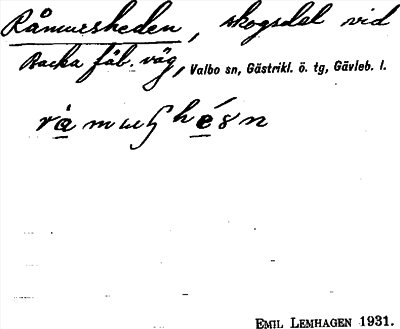 Råmursheden, skogsdel vid
Backa fäb. väg, Valbo sn, Gästrikl. ö. tg, Gävleb. l.
Emil Lemhagen 1931.